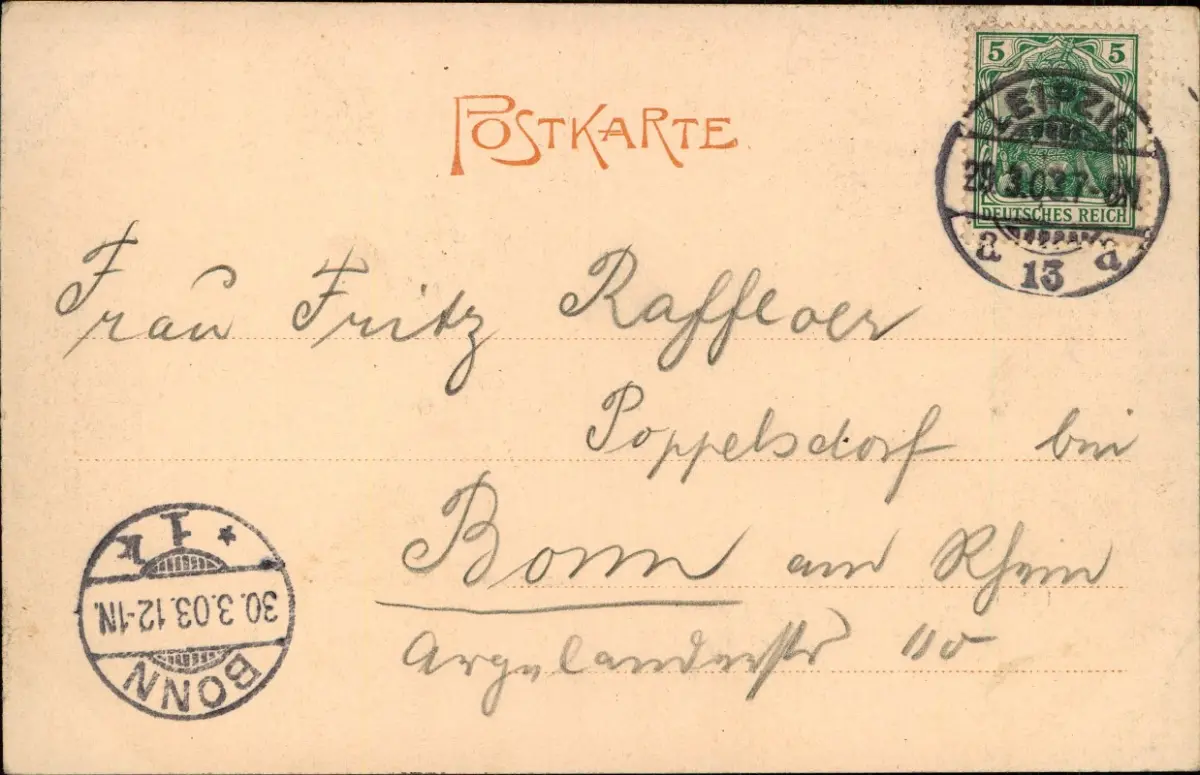 POSTKARTE
5 5
DEUTSCHES REICH
LEIPZIG
29.3.03.7-8N.
a 13 a
Frau Fritz Raffloer
Poppelsdorf bei
Bonn am Rhein
Argelanderstr
BONN
30.3.03.12-1N.
* 1 k